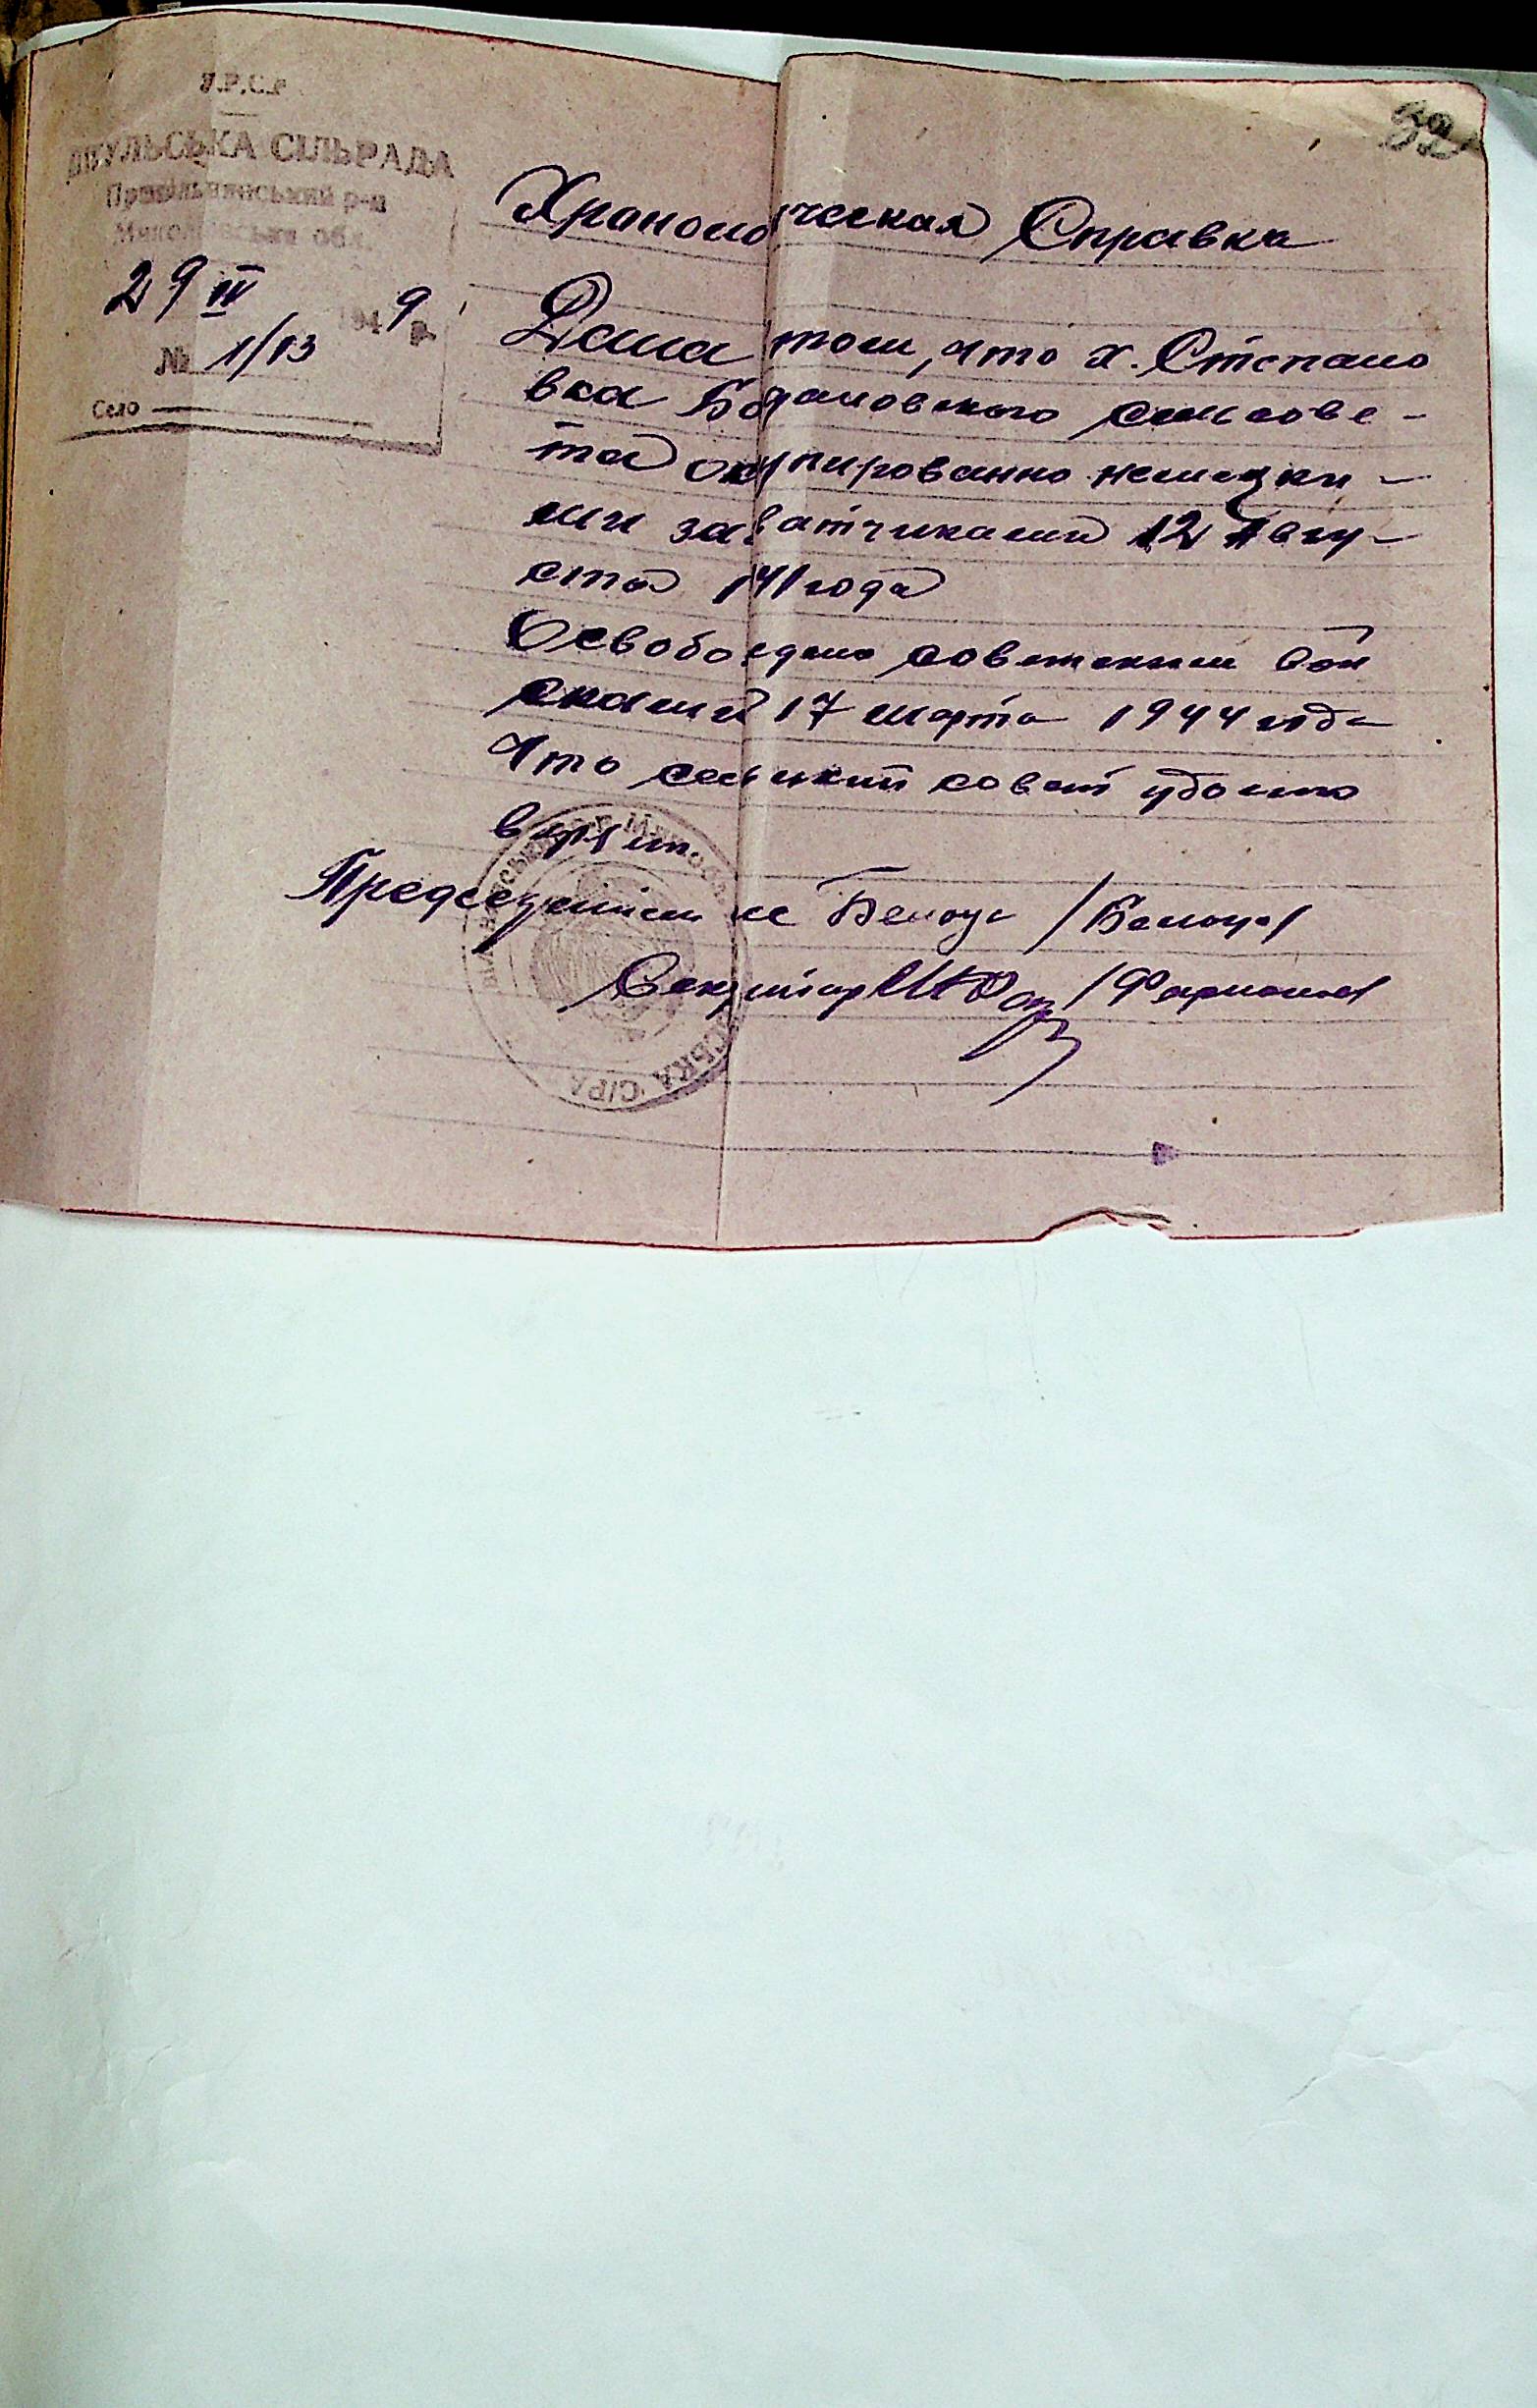 У.Р.С.Р
32
СІЛЬРАДА
Привільнянський р-н
Миколаївська обл.
29 IV 1949 р.
№ 1/13
Село
Хронологическая Справка
Дана том, что х. Степано
вка сельсове-
та окупированно немецки-
ми захватчиками 12 Авгу-
ста 141 года
Освобождено советским вой
сками 17 марта 1944 года
Что сельский совет удосто
верят.
Председатель с/с Белоус /Белоус/
Секретар
СЬКА С/РА